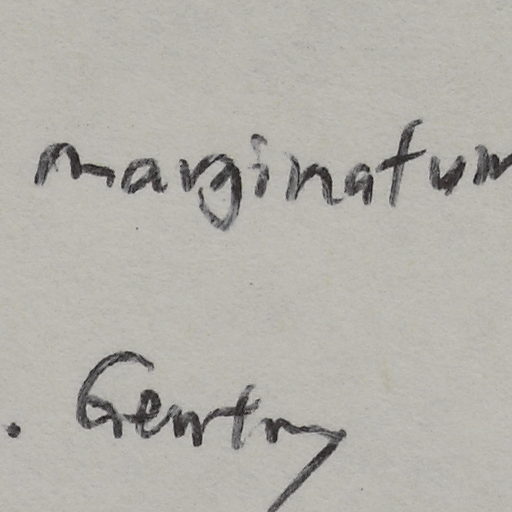 marginatum
. Gentry